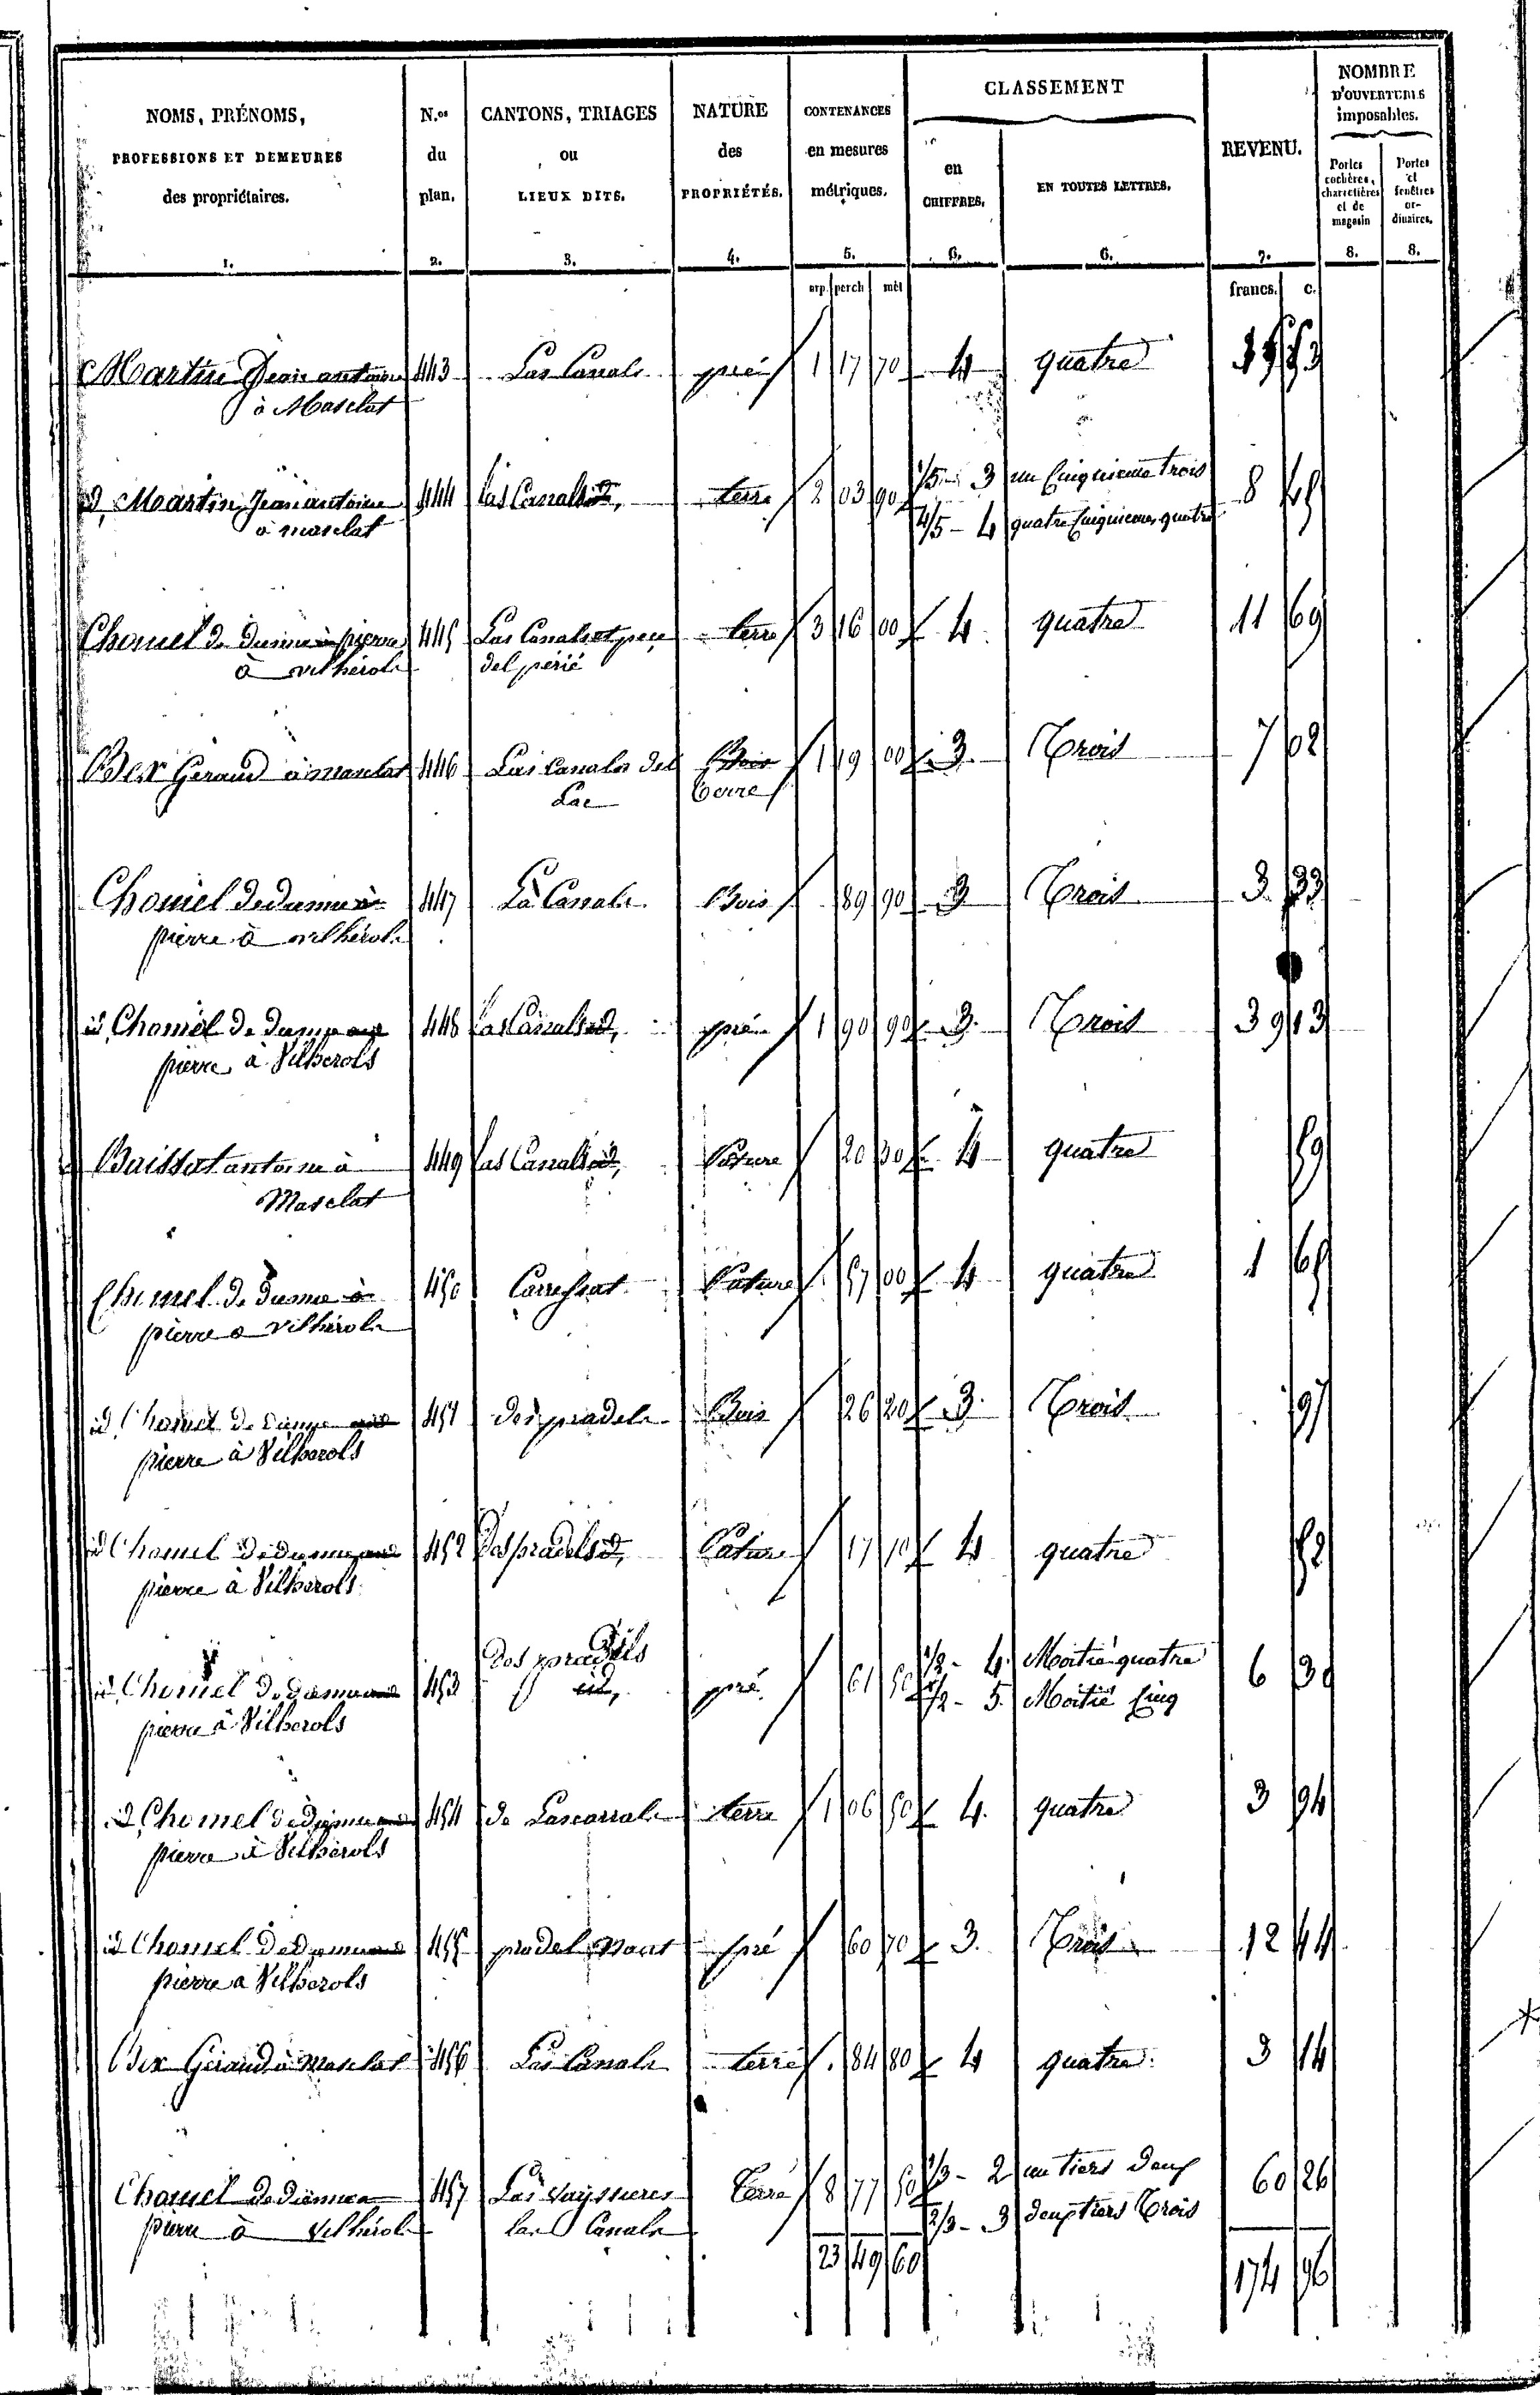 NOMS, PRÉNOMS, PROFESSIONS ET DEMEURES des propriétaires. 1.
N.os du plan. 2.
CANTONS, TRIAGES ou LIEUX DITS. 3.
NATURE des PROPRIÉTÉS. 4.
CONTENANCES en mesures métriques. 5.
CLASSEMENT
en CHIFFRES. 6.
EN TOUTES LETTRES. 6.
REVENU. 7.
NOMBRE D'OUVERTURES imposables.
Portes cochères, charretières et de magasin 8.
Portes et fenêtres ordinaires. 8.
arp. perch mèt francs. c.
Martin Jean antoine 443 Las Canals pré 1 17 70 4 quatre
à Masclat
id, Martin Jean antoine 444 las Canals id, terre 2 03 90 1/5 - 3 un Cinquieme trois 8 49
à masclat 4/5 - 4 quatre Cinquiemes quatre
Chomel de pierre 445 Las Canals et pech terre 3 16 00 4 quatre 11 69
à vilhérols del périé
Bex Géraud à masclat 446 Las Canals del Bois 1 19 00 3. Trois 7 02
Lac terre
Chomel de 447 La Canals Bois 89 90 3 Trois 3 33
pierre à vilhérols
id, Chomel de 448 las Canals id, pré 1 90 90 3. Trois 39 13
pierre à Vilherols
Baissat antoine à 449 las Canals id, Pature 20 30 4 quatre 59
Masclat
Chomel de 450 Pature 57 00 4 quatre 1 65
pierre a vilhérols
id, Chomel de 451 des pradels Bois 26 20 3. Trois 97
pierre à Vilherols
id Chomel de 452 des pradels id, Pature 17 10 4 quatre 52
pierre à Vilherols
des pradels
id, Chomel de 453 id, pré 61 50 1/2 - 4 Moitié quatre 6 30
pierre à Vilherols 1/2 - 5 Moitié Cinq
id, Chomel de 454 de Lascanals terre 1 06 50 4. quatre 3 94
pierre à Vilherols
id Chomel de 455 pradel pré 60 70 3. Trois 12 44
pierre a Vilherols
Bex Géraud à masclat 456 Las Canals terre 84 80 4 quatre 3 14
Chomel de 457 Las Vayssieres terre 8 77 50 1/3 - 2 un tiers deux 60 26
pierre à Vilhérols las Canals 2/3 - 3 deux tiers Trois
23 49 60 174 96